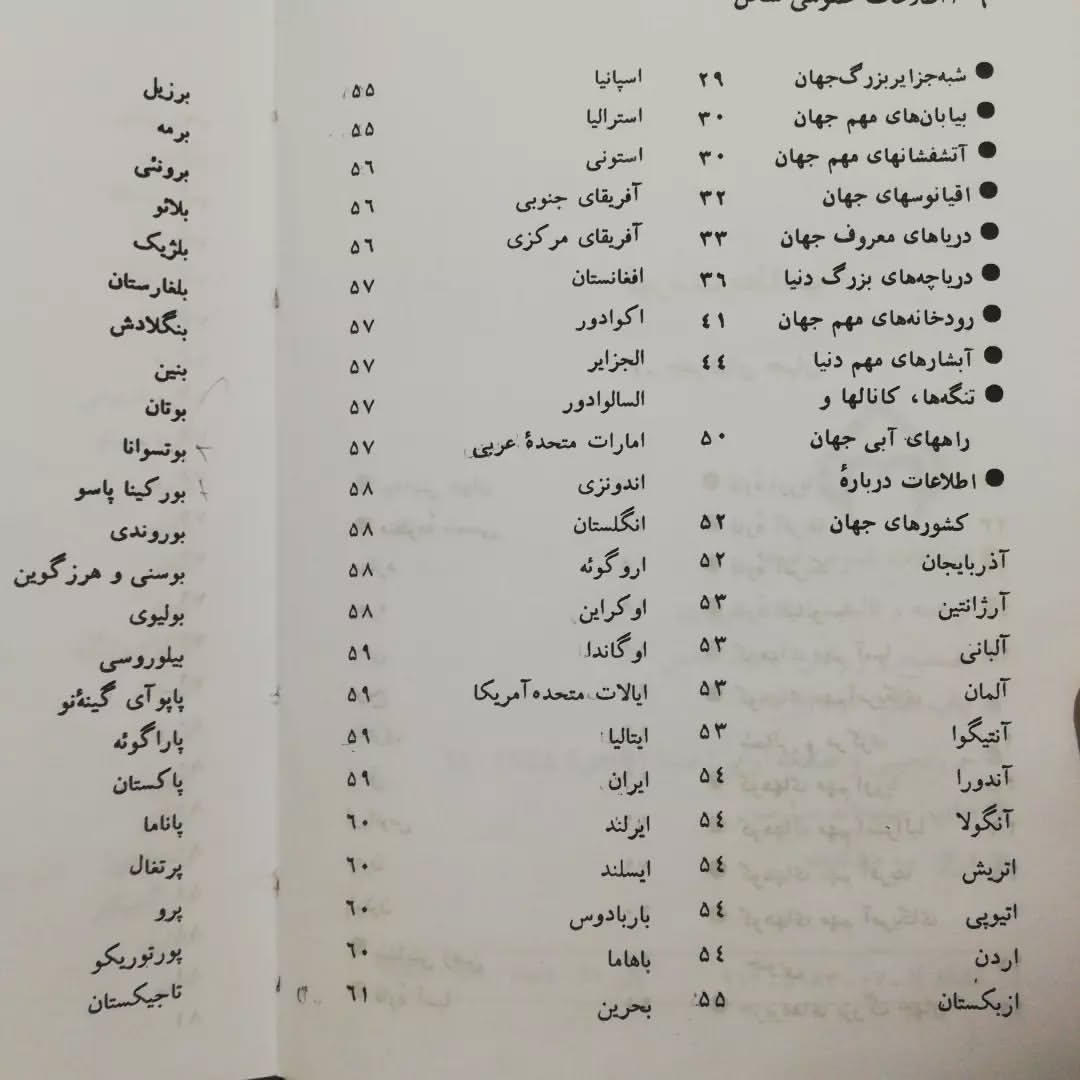 ● شبه‌جزایر بزرگ جهان ۲۹
● بیابان‌های مهم جهان ۳۰
● آتشفشانهای مهم جهان ۳۰
● اقیانوسهای جهان ۳۲
● دریاهای معروف جهان ۳۳
● دریاچه‌های بزرگ دنیا ۳۶
● رودخانه‌های مهم جهان ۴۱
● آبشارهای مهم دنیا ۴۴
● تنگه‌ها، کانالها و
راههای آبی جهان ۵۰
● اطلاعات دربارهٔ
کشورهای جهان ۵۲
آذربایجان ۵۲
آرژانتین ۵۳
آلبانی ۵۳
آلمان ۵۳
آنتیگوا ۵۳
آندورا ۵۴
آنگولا ۵۴
اتریش ۵۴
اتیوپی ۵۴
اردن ۵۴
ازبکستان ۵۵
اسپانیا ۵۵
استرالیا ۵۵
استونی ۵۶
آفریقای جنوبی ۵۶
آفریقای مرکزی ۵۶
افغانستان ۵۷
اکوادور ۵۷
الجزایر ۵۷
السالوادور ۵۷
امارات متحدهٔ عربی ۵۷
اندونزی ۵۸
انگلستان ۵۸
اروگوئه ۵۸
اوکراین ۵۸
اوگاندا ۵۹
ایالات متحده آمریکا ۵۹
ایتالیا ۵۹
ایران ۵۹
ایرلند ۶۰
ایسلند ۶۰
باربادوس ۶۰
باهاما ۶۰
بحرین ۶۱
برزیل
برمه
برونئی
بلائو
بلژیک
بلغارستان
بنگلادش
بنین
بوتان
بوتسوانا
بورکینا پاسو
بوروندی
بوسنی و هرزگوین
بولیوی
بیلوروسی
پاپوآی گینهٔ‌نو
پاراگوئه
پاکستان
پاناما
پرتغال
پرو
پورتوریکو
تاجیکستان